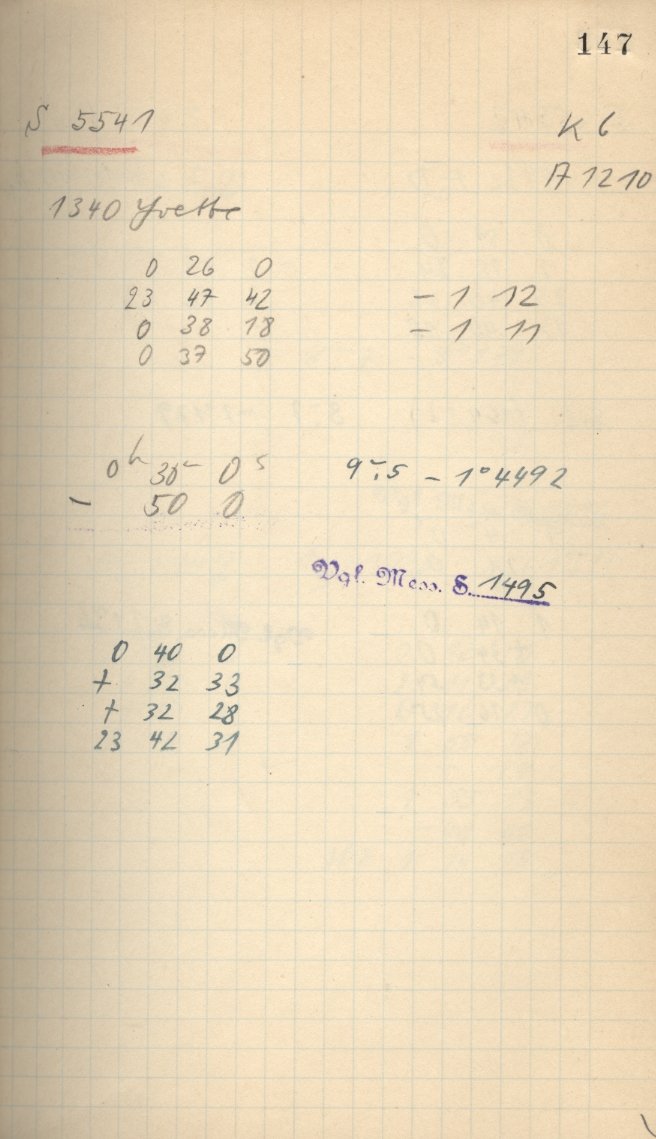 147
S 5541
K 6
A 1210
1340 Yvette
0 26 0
23 47 42 - 1 12
0 38 18 - 1 11
0 37 50
0h 30m 0s 9m.5 - 1°4492
- 50 0
Vgl. Mess. S. 1495
0 40 0
+ 32 33
+ 32 28
23 42 31